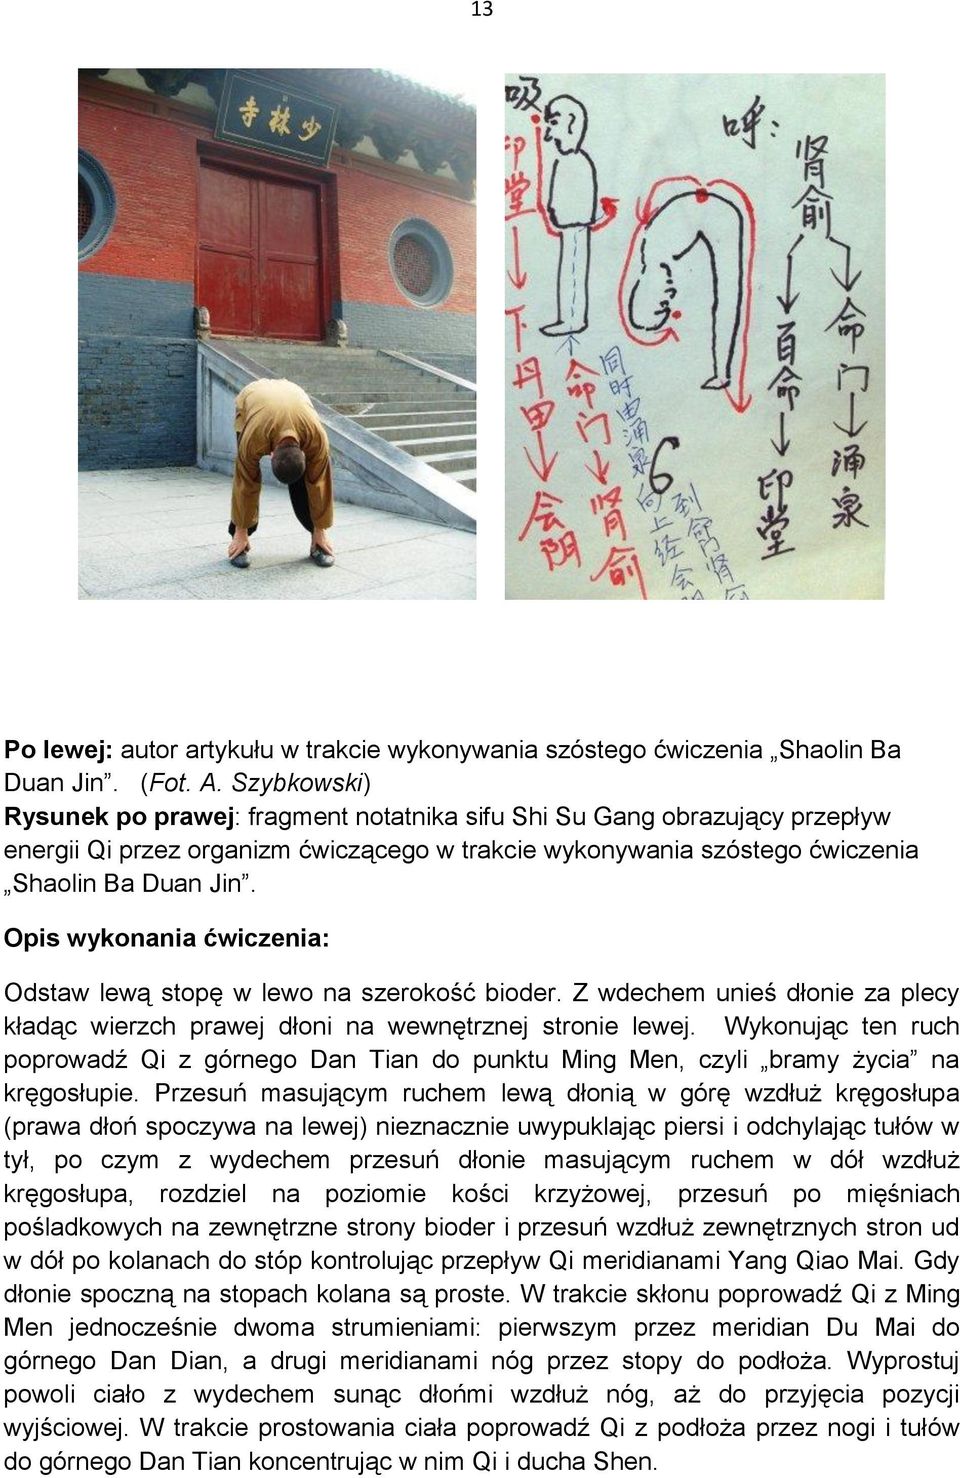 13
少林寺
吸
印堂
下丹田
会阴
命门
肾俞
同时由涌泉
向上经会阴
到命门肾俞
6
呼:
肾俞
百会
印堂
命门
涌泉
Po lewej: autor artykułu w trakcie wykonywania szóstego ćwiczenia „Shaolin Ba
Duan Jin”. (Fot. A. Szybkowski)
Rysunek po prawej: fragment notatnika sifu Shi Su Gang obrazujący przepływ
energii Qi przez organizm ćwiczącego w trakcie wykonywania szóstego ćwiczenia
„Shaolin Ba Duan Jin”.
Opis wykonania ćwiczenia:
Odstaw lewą stopę w lewo na szerokość bioder. Z wdechem unieś dłonie za plecy
kładąc wierzch prawej dłoni na wewnętrznej stronie lewej. Wykonując ten ruch
poprowadź Qi z górnego Dan Tian do punktu Ming Men, czyli „bramy życia” na
kręgosłupie. Przesuń masującym ruchem lewą dłonią w górę wzdłuż kręgosłupa
(prawa dłoń spoczywa na lewej) nieznacznie uwypuklając piersi i odchylając tułów w
tył, po czym z wydechem przesuń dłonie masującym ruchem w dół wzdłuż
kręgosłupa, rozdziel na poziomie kości krzyżowej, przesuń po mięśniach
pośladkowych na zewnętrzne strony bioder i przesuń wzdłuż zewnętrznych stron ud
w dół po kolanach do stóp kontrolując przepływ Qi meridianami Yang Qiao Mai. Gdy
dłonie spoczną na stopach kolana są proste. W trakcie skłonu poprowadź Qi z Ming
Men jednocześnie dwoma strumieniami: pierwszym przez meridian Du Mai do
górnego Dan Dian, a drugi meridianami nóg przez stopy do podłoża. Wyprostuj
powoli ciało z wydechem sunąc dłońmi wzdłuż nóg, aż do przyjęcia pozycji
wyjściowej. W trakcie prostowania ciała poprowadź Qi z podłoża przez nogi i tułów
do górnego Dan Tian koncentrując w nim Qi i ducha Shen.